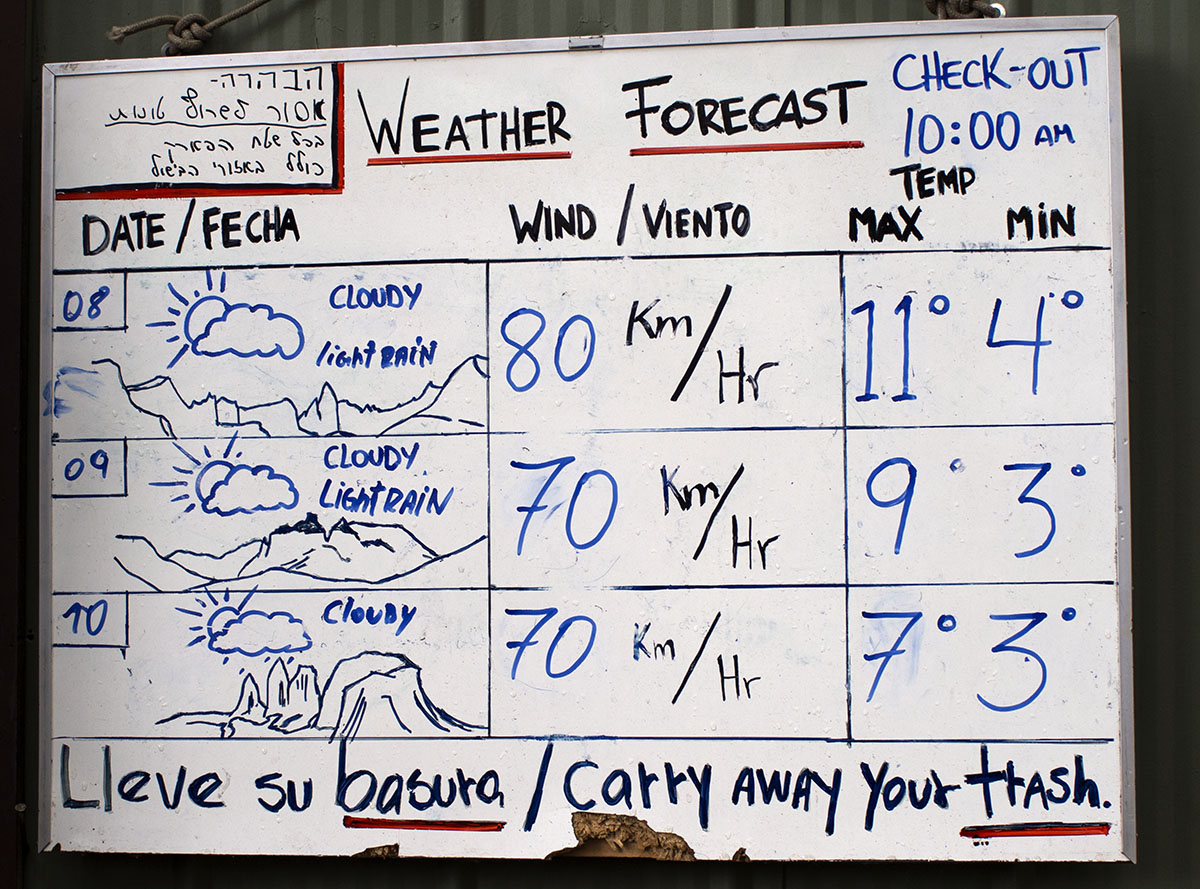 הבהרה-
אסור לשרוף טונות
בכל שטח הפארק
כולל באזורי הבישול
WEATHER FORECAST
CHECK-OUT
10:00 AM
TEMP
DATE / FECHA WIND / VIENTO MAX MIN
08 CLOUDY
lightRAIN
80 Km/Hr 11° 4°
09 CLOUDY
LightRAIN
70 Km/Hr 9° 3°
10 Cloudy
70 Km/Hr 7° 3°
Lleve su basura / Carry AWAY Your trash.